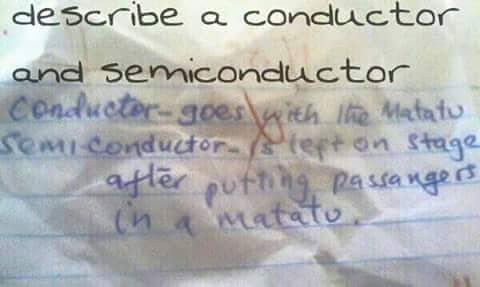 describe a conductor
and semiconductor
Conductor - goes with the Matatu
Semi-conductor - is left on stage
after putting passangers
in a matatu.